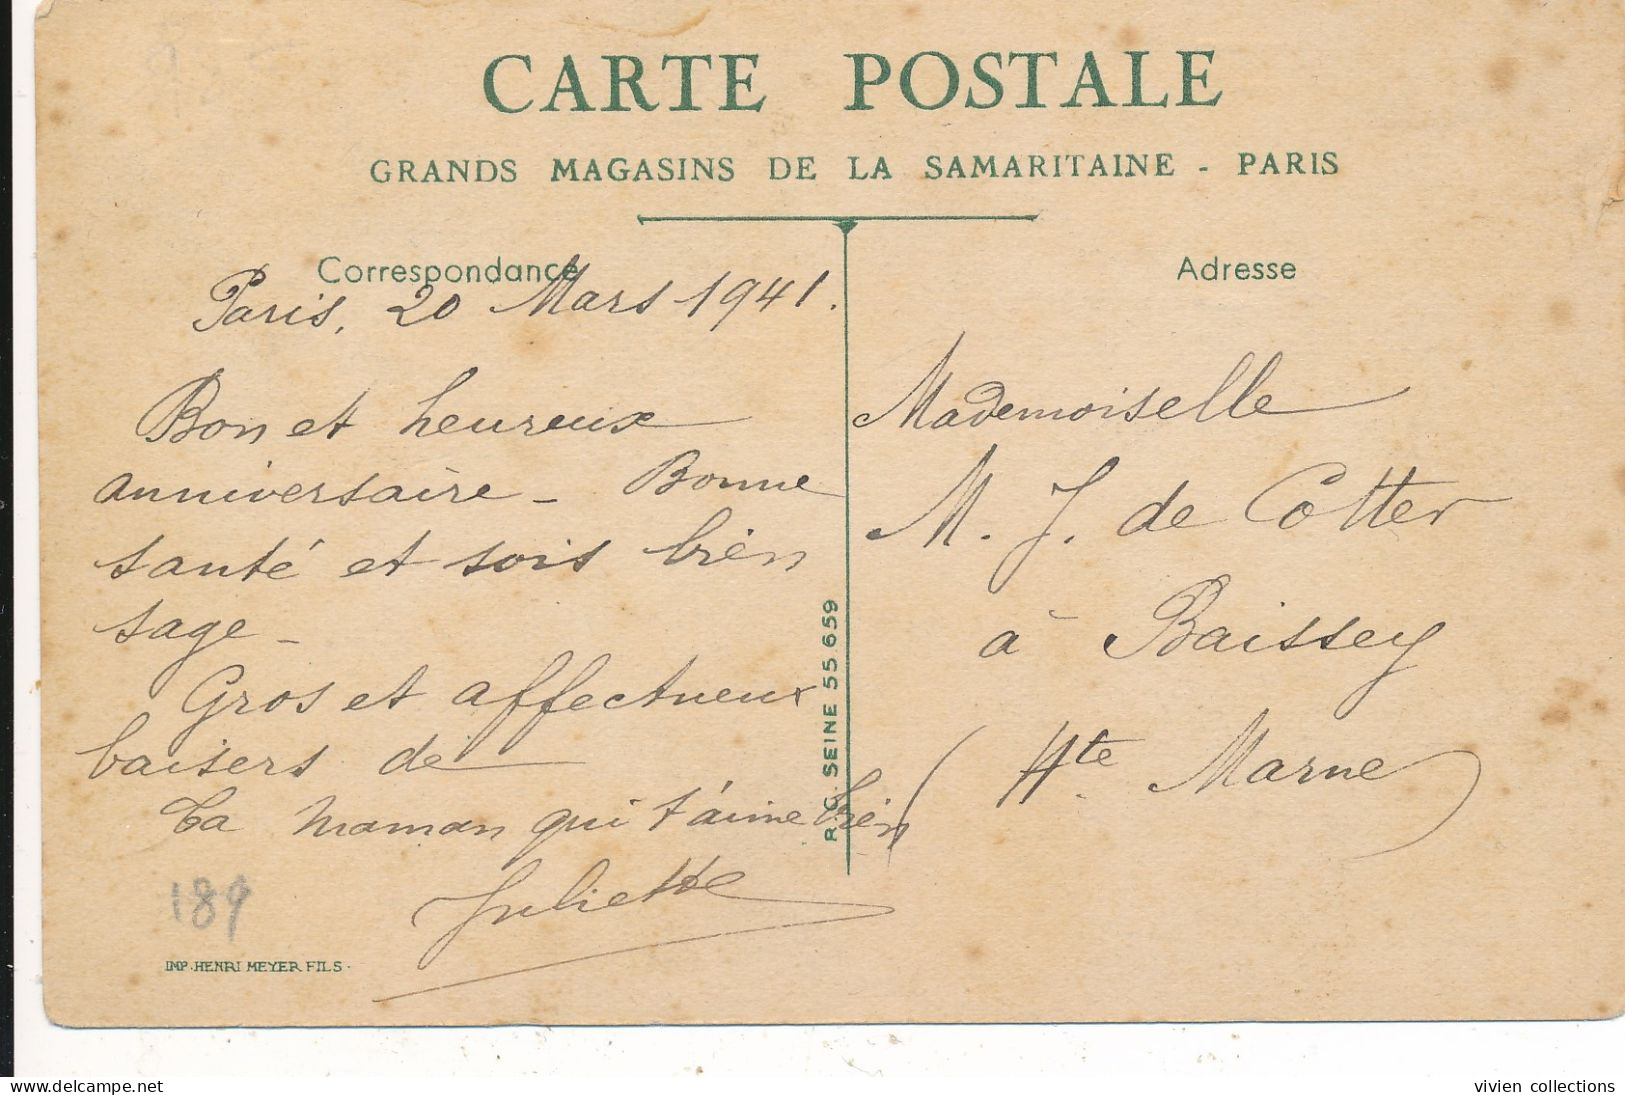 CARTE POSTALE
GRANDS MAGASINS DE LA SAMARITAINE - PARIS
Correspondance
Paris, 20 Mars 1941.
Bon et heureux
anniversaire - Bonne
santé et sois bien
sage -
Gros et affectueux
baisers de
Ta maman qui t'aime bien
Juliette
189
IMP. HENRI MEYER FILS.
R.C. SEINE 55.659
Adresse
Mademoiselle
M. J. de Cotter
à Baissey
(Hte Marne)
delcampe.net
vivien collections